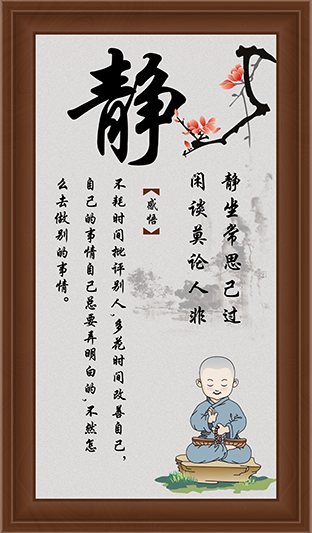 静
静坐常思己过
闲谈莫论人非
【感悟】
不耗时间批评别人，多花时间改善自己，
自己的事情自己总要弄明白的，不然怎
么去做别的事情。